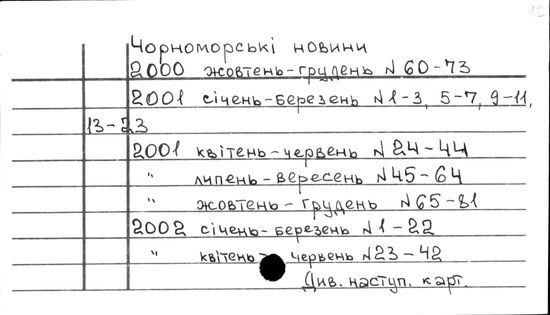 12
Чорноморські новини
2000 жовтень-грудень №60-73
2001 січень-березень №1-3, 5-7, 9-11,
13-23
2001 квітень-червень №24-44
" липень-вересень №45-64
" жовтень-грудень №65-81
2002 січень-березень №1-22
" квітень- червень №23-42
Див. наступ. карт.